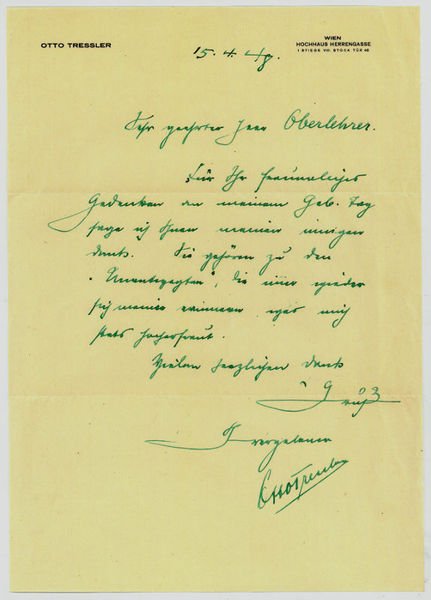 OTTO TRESSLER
WIEN
HOCHHAUS HERRENGASSE
1 STIEGE VII. STOCK TÜR 48
15. 4. 48.
Sehr geehrter Herr Oberlehrer.
Für Ihr freundliches
Gedenken an meinem Geb. Tag
sage ich Ihnen meinen innigen
Dank. Sie gehören zu den
"Unentwegten", die immer wieder
sich meiner erinnern was mich
stets hocherfreut.
Vielen herzlichen Dank
Gruß
Ihr ergebener
Otto Tressler